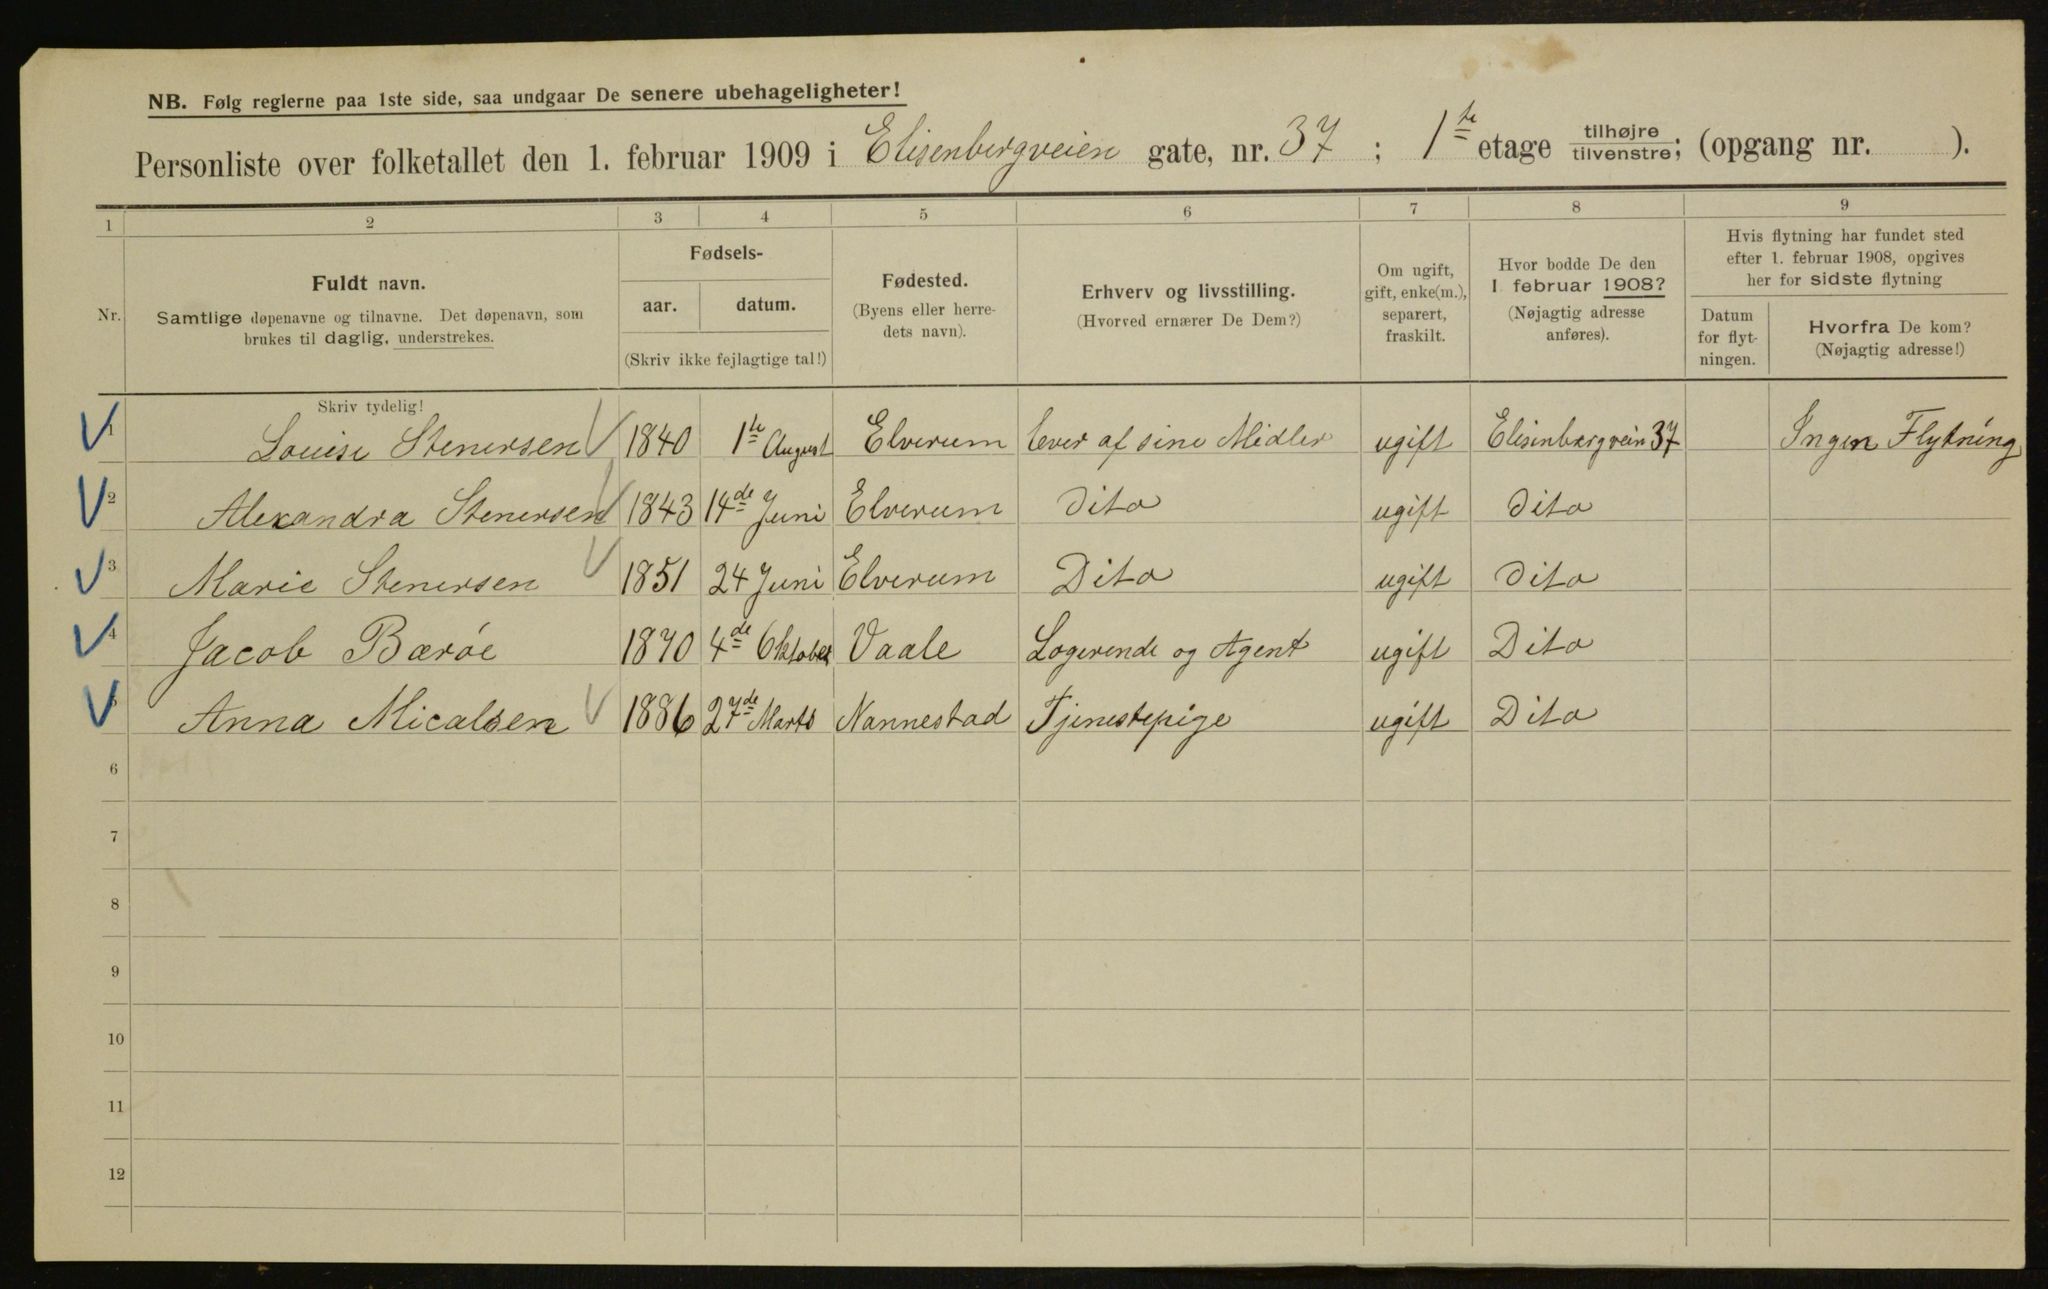 NB. Følg reglerne paa 1ste side, saa undgaar De senere ubehageligheter!
Personliste over folketallet den 1. februar 1909 i Elisenbergveien gate, nr. 37 ; 1ste etage tilhøjre tilvenstre; (opgang nr. ).
1 2 3 4 5 6 7 8 9
Nr.
Fuldt navn.
Samtlige døpenavne og tilnavne. Det døpenavn, som
brukes til daglig, understrekes.
Fødsels-
aar. datum.
(Skriv ikke fejlagtige tal!)
Fødested.
(Byens eller herre-
dets navn).
Erhverv og livsstilling.
(Hvorved ernærer De Dem?)
Om ugift,
gift, enke(m.),
separert,
fraskilt.
Hvor bodde De den
1 februar 1908?
(Nøjagtig adresse
anføres).
Hvis flytning har fundet sted
efter 1. februar 1908, opgives
her for sidste flytning
Datum
for flyt-
ningen.
Hvorfra De kom?
(Nøjagtig adresse!)
Skriv tydelig!
1 Louise Stenersen 1840 1ste August Elverum lever af sine Midler ugift Elisinbærgvein 37 Ingen Flytning
2 Alexandra Stenersen 1843 14de Juni Elverum Dito ugift Dito
3 Marie Stenersen 1851 24 Juni Elverum Dito ugift Dito
4 Jacob Bærøe 1870 4de Oktober Vaale Logerende og Agent ugift Dito
5 Anna Micalsen 1886 27de Marts Nannestad Tjenestepige ugift Dito
6
7
8
9
10
11
12